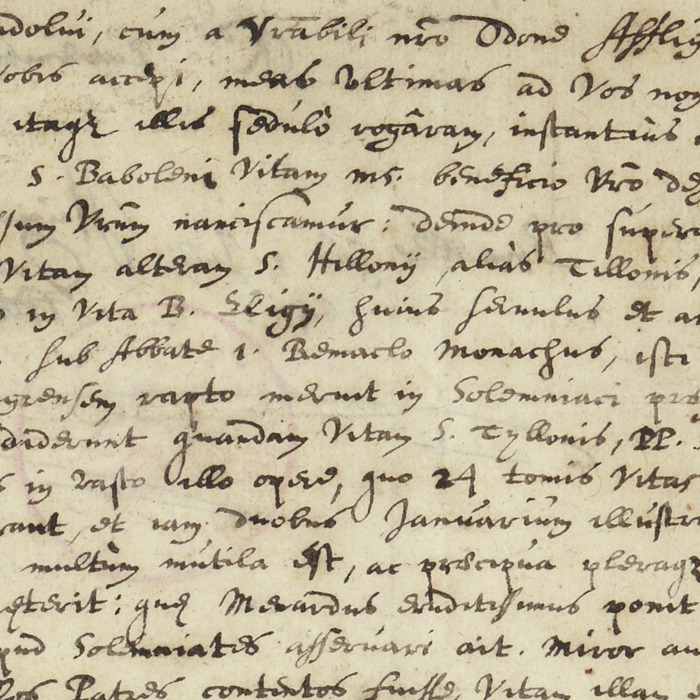 ndolui, cum a Vrabili nro Odone Afflig
vobis accepi, meas ultimas ad Vos non
itaq illis sedulò rogâram, instantiùs
S. Baboleni Vitam ms. beneficio Vro de
ssum Vrum nanciscamur: deinde pro super
Vitam alteram S. Hillonij aliàs Tillonis,
in Vita B. Eligij, huius servulus et a
sub Abbate 1. Remaclo Monachus, isti
grensem rapto meruit in Solemniaci
diderunt quandam Vitam S. Tyllonis, PP.
s in vasto illo opere, quo 24 tomis Vitas
rant, et iam duobus Januarium illustr
multùm mutila est, ac præcipua pleraq
terit; quę Menardus eruditissimus ponit
pud Solemniates asservari ait. Miror au
los Patres contentos fuisse, Vitam illam